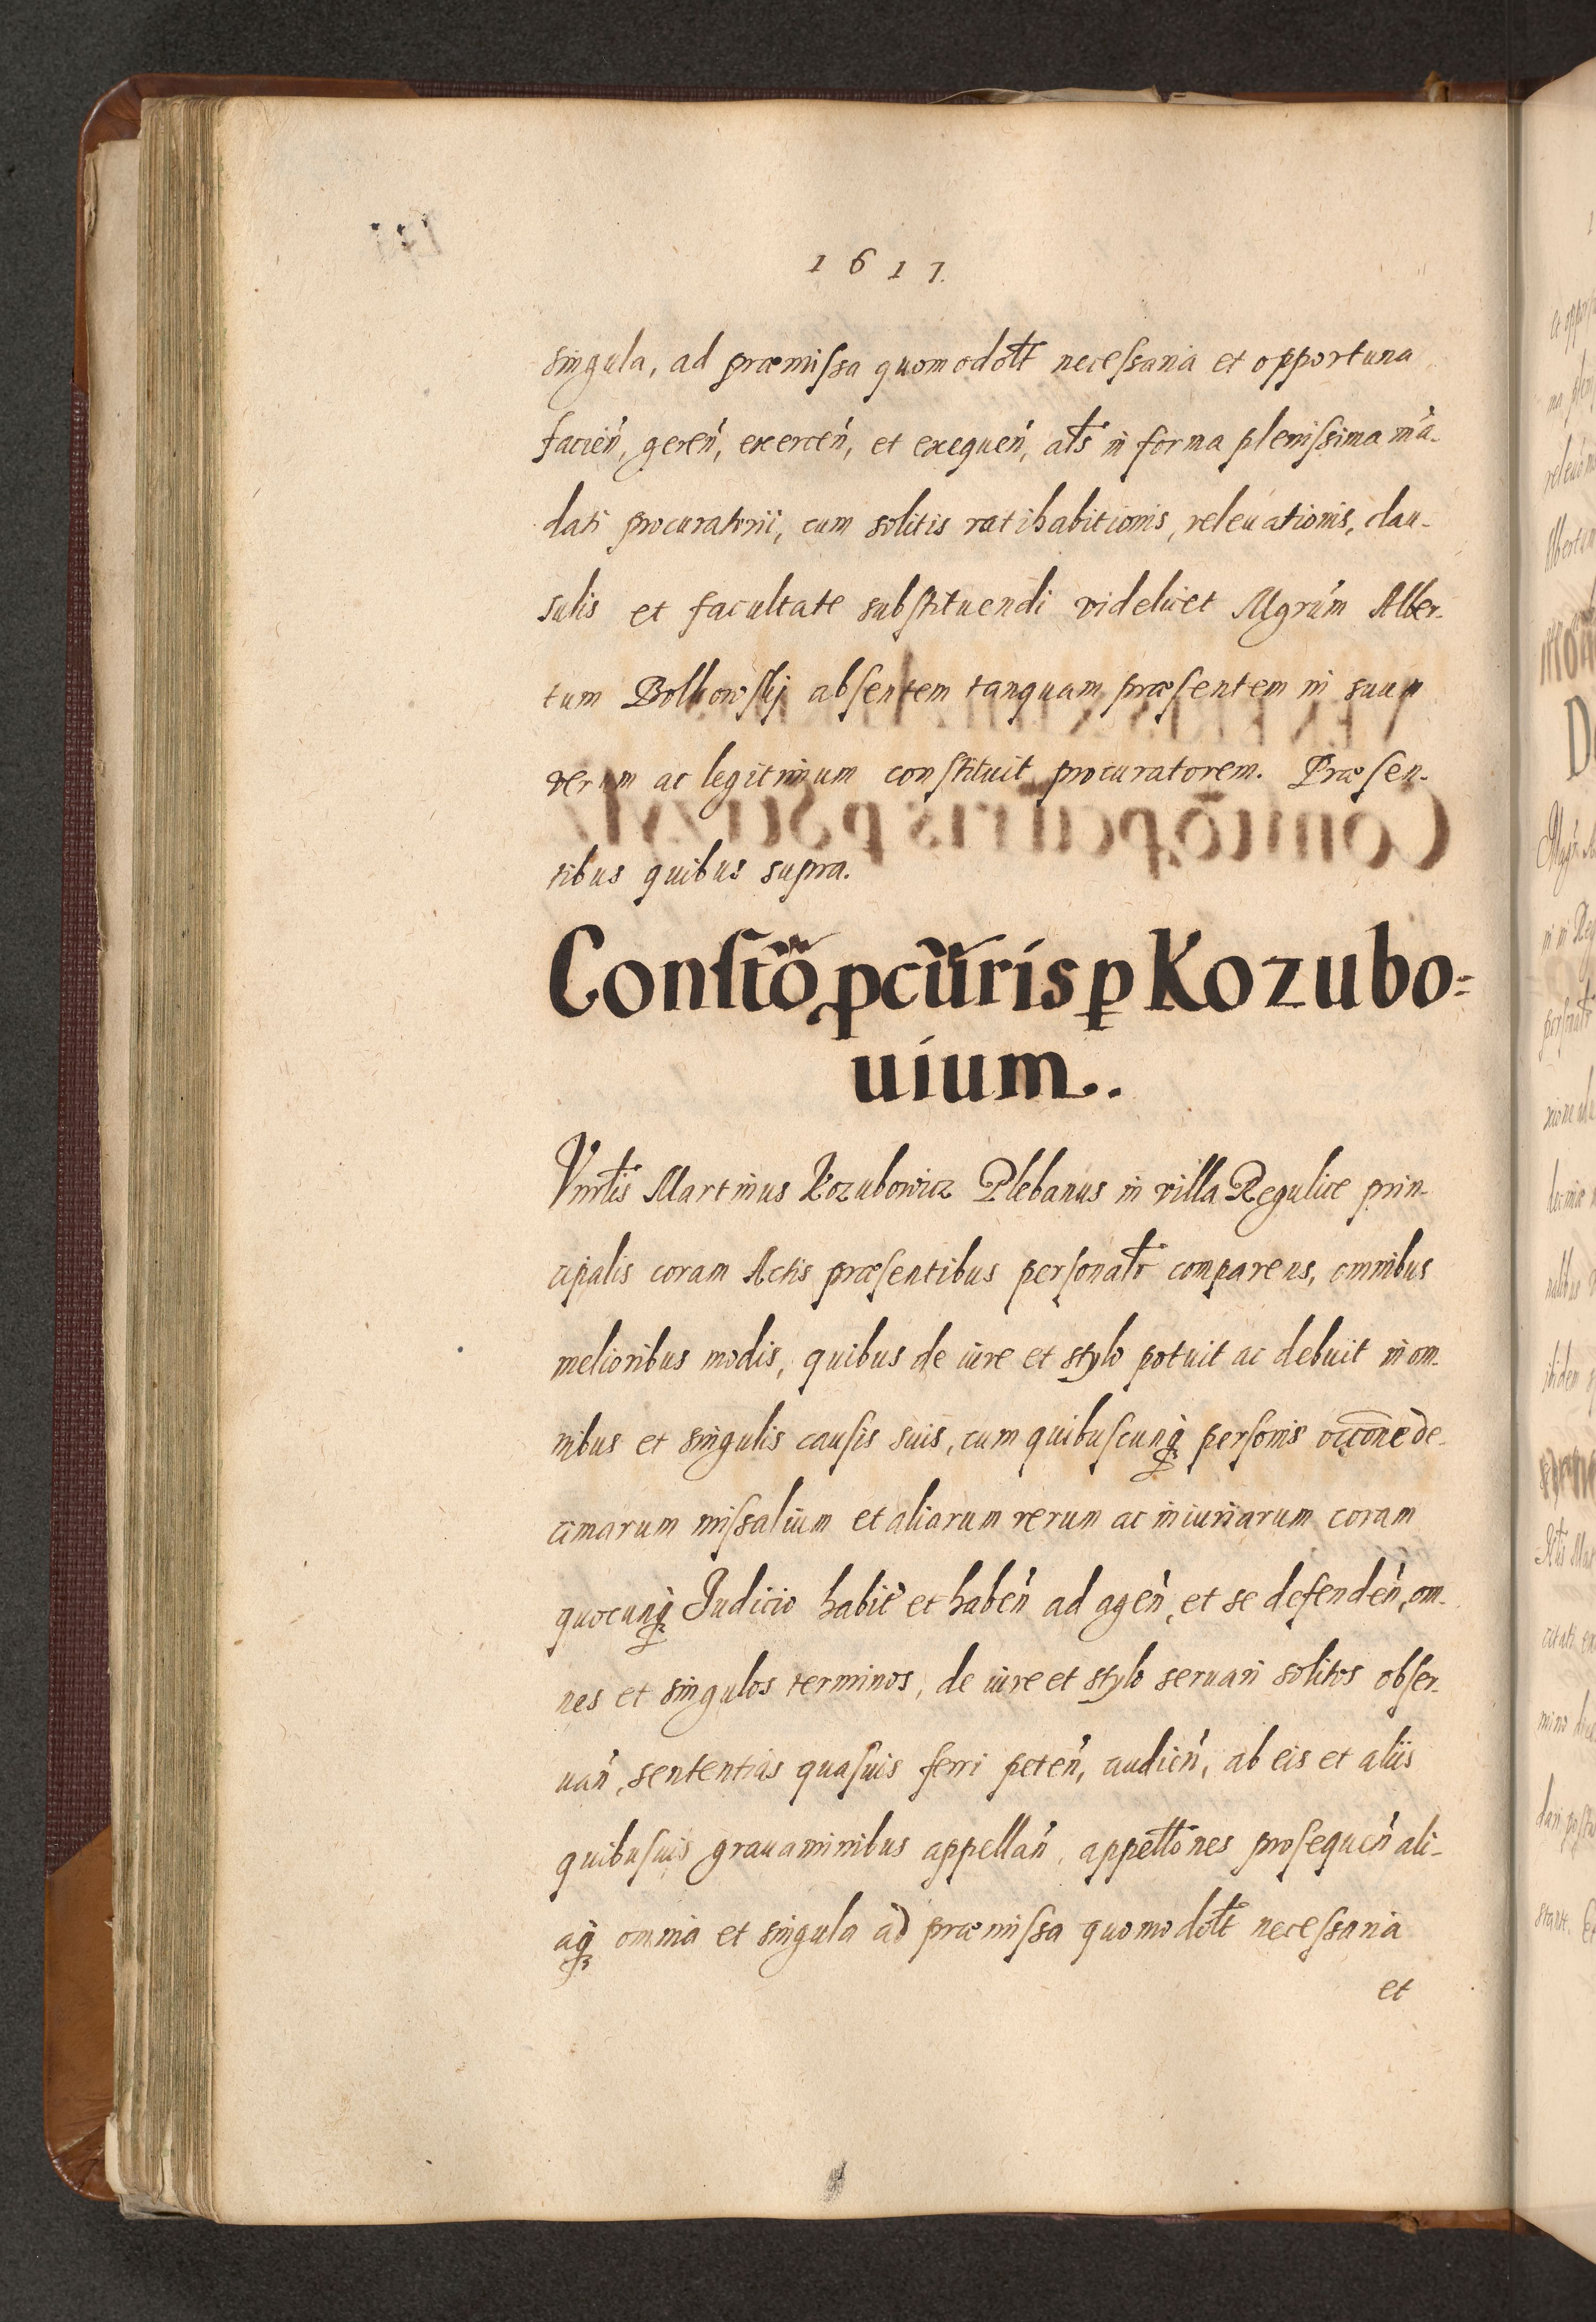 1617.
singula, ad præmissa quomodolt̃ necessaria et opportuna
facień, gereń, exerceń, et exequeń, alt̃s in forma plenissima ḿa-
dati procuratorii, cum solitis ratihabitionis, releuationis, clau-
sulis et facultate substituendi videlicet Mgrúm Alber-
tum Bolkowskj absentem tanquam præsentem in suum
verum ac legitimum constituit procuratorem. Præsen-
tibus quibus supra.
Constõ pcũris p̱ Kozubo=
uium.
Vnrlis Martinus Kozubowicz Plebanus in villa Regulice prin-
cipalis coram Actis præsentibus personalr̃ comparens, omnibus
melioribus modis, quibus de iure et stylo potuit ac debuit in om-
nibus et singulis causis suis, cum quibuscunq̃ personis occõne de-
cimarum missalium et aliarum rerum ac iniuriarum coram
quocunq̃ Iudicio habit̃ et habeń ad ageń, et se defendeń, om-
nes et singulos terminos, de iure et stylo seruari solitos obser-
uań, sententias quasuis ferri peteń, audień, ab eis et aliis
quibusuis grauaminibus appellań, appellõnes prosequeń ali-
aq̃ omnia et singula ad præmissa quomodolt̃ necessaria
et